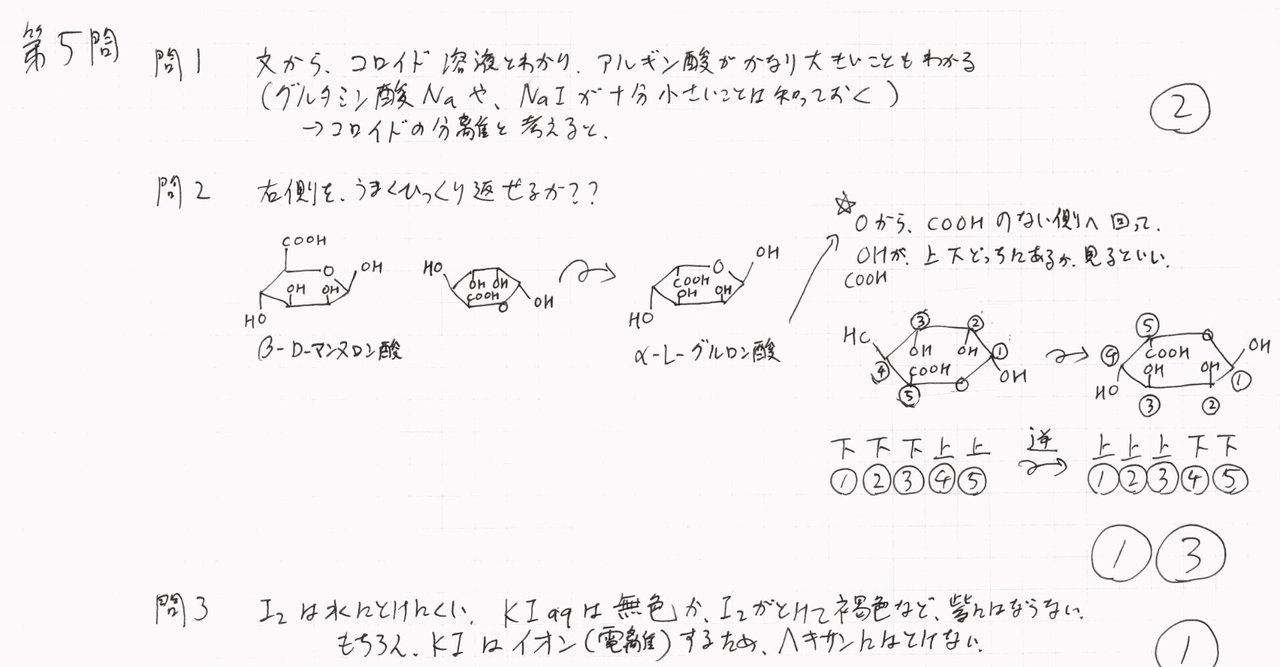 第5問
問1 文から、コロイド溶液とわかり、アルギン酸がかなり大きいこともわかる
(グルタミン酸Naや、NaIが十分小さいことは知っておく)
→コロイドの分離と考えると、
②
問2 右側を、うまくひっくり返せるか??
☆Oから、COOHのない側へ回って、
OHが、上下どっちにあるか、見るといい。
COOH
COOH
O OH
OH OH
HO
β-D-マンヌロン酸
HO
OH OH
COOH
O OH
O OH
COOH
OH OH
HO
α-L-グルロン酸
③ ②
HC
OH OH
① OH
④ COOH
⑤ O
⑤ O
④ COOH OH
HO OH OH ①
③ ②
下下下上上 逆 上上上下下
①②③④⑤ ①②③④⑤
① ③
問3 I2は水にとけにくい。KIaqは無色か、I2がとけて褐色など、紫にはならない。
もちろん、KIはイオン(電離)するため、ヘキサンにはとけない。
①